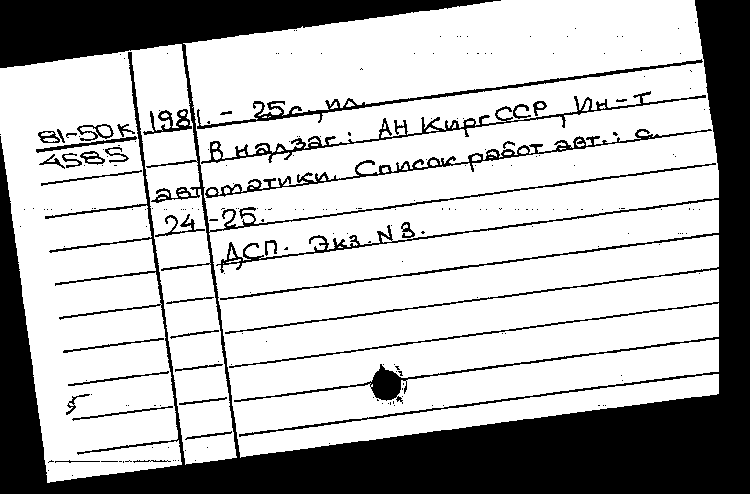 81-50к
4585
1981. - 25с., ил.
В надзаг.: АН КиргССР, Ин-т
автоматики. Список работ авт.: с.
24-25.
ДСП. Экз. N 3.
5